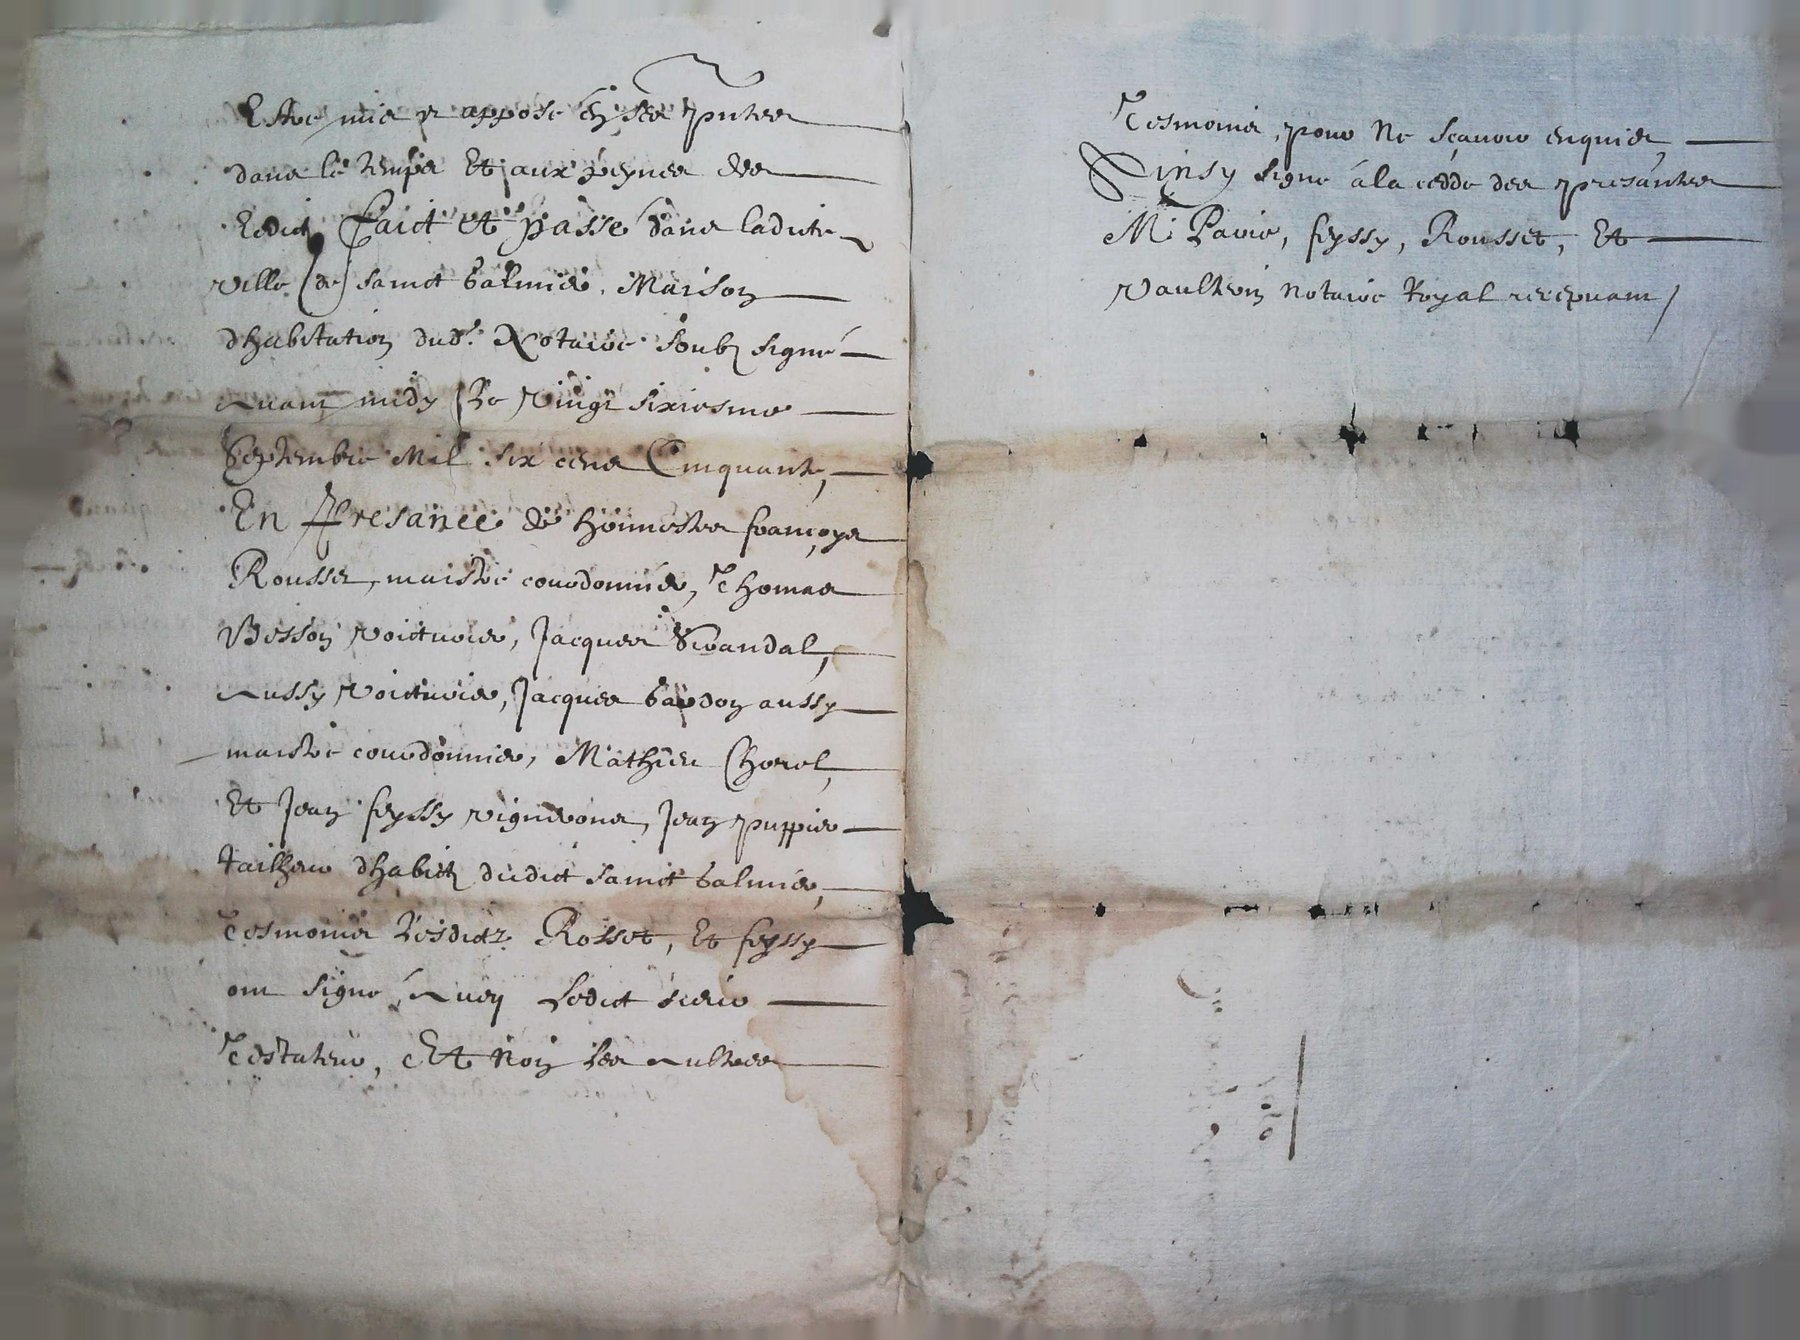 Estre mis et appose En ses pntes
dans le temps Et aux peynes des
Edict Faict et passe dans ladicte
ville de sainct Galmier, Maison
dhabitation dud. Notaire soubz signé
Avant midy Le vingt sixiesme
Septembre Mil six cens Cinquante,
En Presance de honnestes françoys
Rousset, maistre courdonnier, Thomas
Besson voicturier, Jacques
Aussy voicturier, Jacques aussy
maistre courdonnier, Mathieu Chorel,
Et Jean feyssy vignerons, Jean puppier
tailheur dhabitz dudict sainct Galmier,
Tesmoins Lesdictz Rosset, Et feyssy
ont signé Avec Ledict sieur
Testateur, Et Non Les Aultres
Tesmoins, pour Ne sçavoir enquis,
Ainsy signé à la cedde des presantes
M. Pavie, feyssy, Rousset, Et
Vaulterin Notaire Royal recepvant